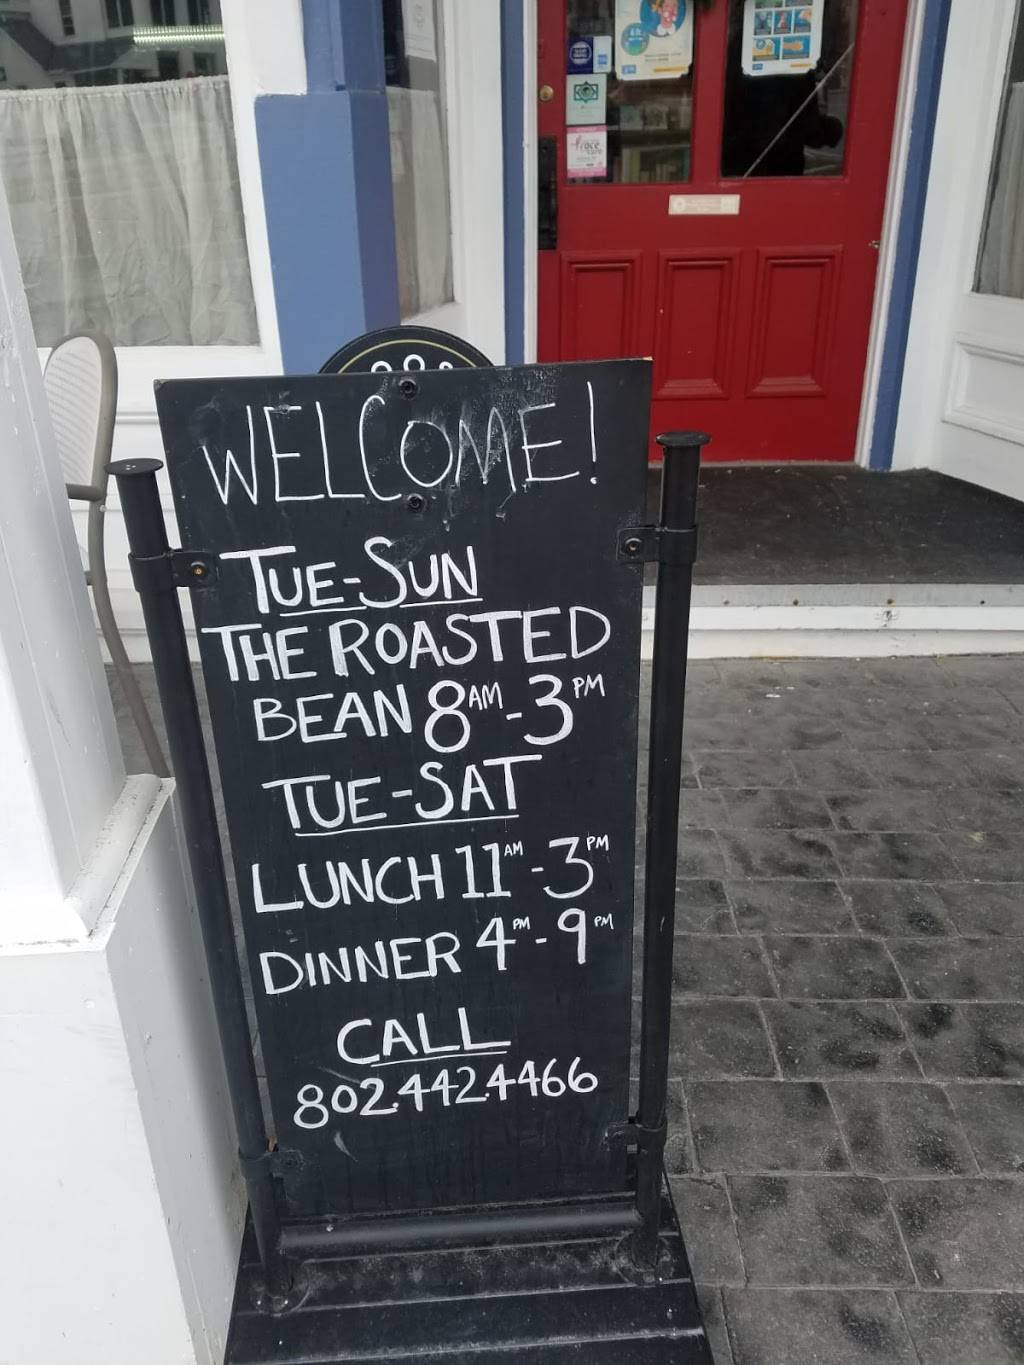 WELCOME!
TUE-SUN
THE ROASTED
BEAN 8AM-3PM
TUE-SAT
LUNCH 11AM-3PM
DINNER 4PM-9PM
CALL
802.442.4466